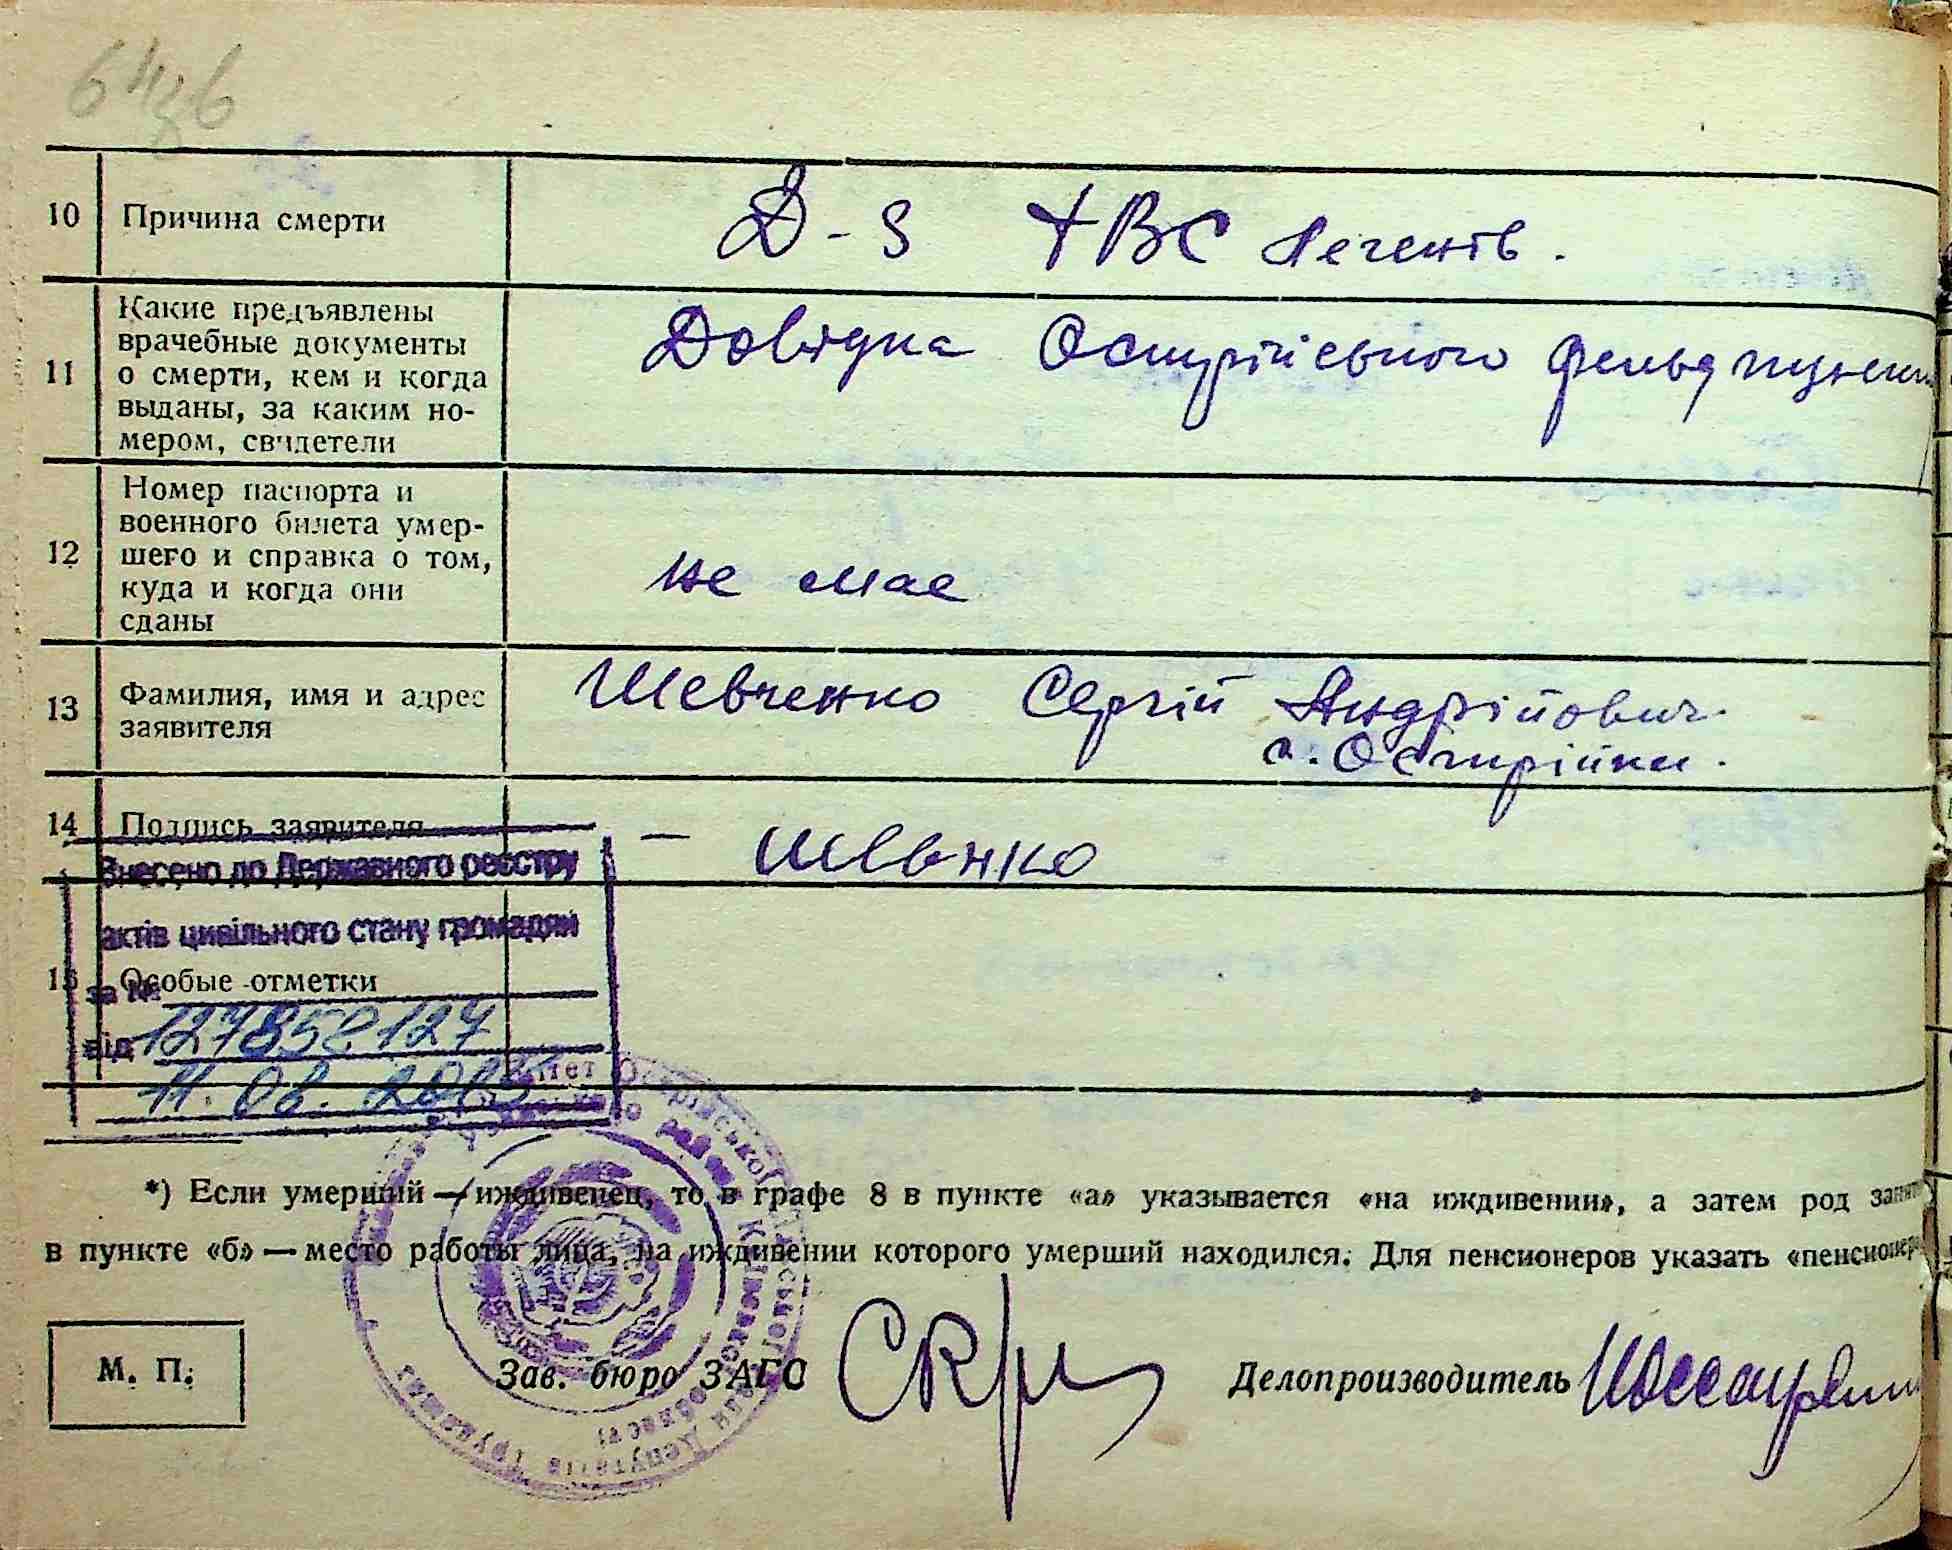 10 Причина смерти
D-s ТВС легенів.
11 Какие предъявлены
врачебные документы
о смерти, кем и когда
выданы, за каким но-
мером, свидетели
Довідка Острійського фельдпункт
12 Номер паспорта и
военного билета умер-
шего и справка о том,
куда и когда они
сданы
не має
13 Фамилия, имя и адрес
заявителя
Шевченко Сергій Андрійович
с. Острійки.
14 Подпись заявителя
—
Внесено до Державного реєстру
актів цивільного стану громадян
15 Особые отметки
за №
від 127858127
11.08.2015
*) Если умерший — иждивенец, то в графе 8 в пункте «а» указывается «на иждивении», а затем род
в пункте «б» — место работы лица, на иждивении которого умерший находился. Для пенсионеров указать «пенсионер
М. П.
Зав. бюро ЗАГС
Делопроизводитель
Острійської сільської Ради Депутатів Трудящих
району Київської області